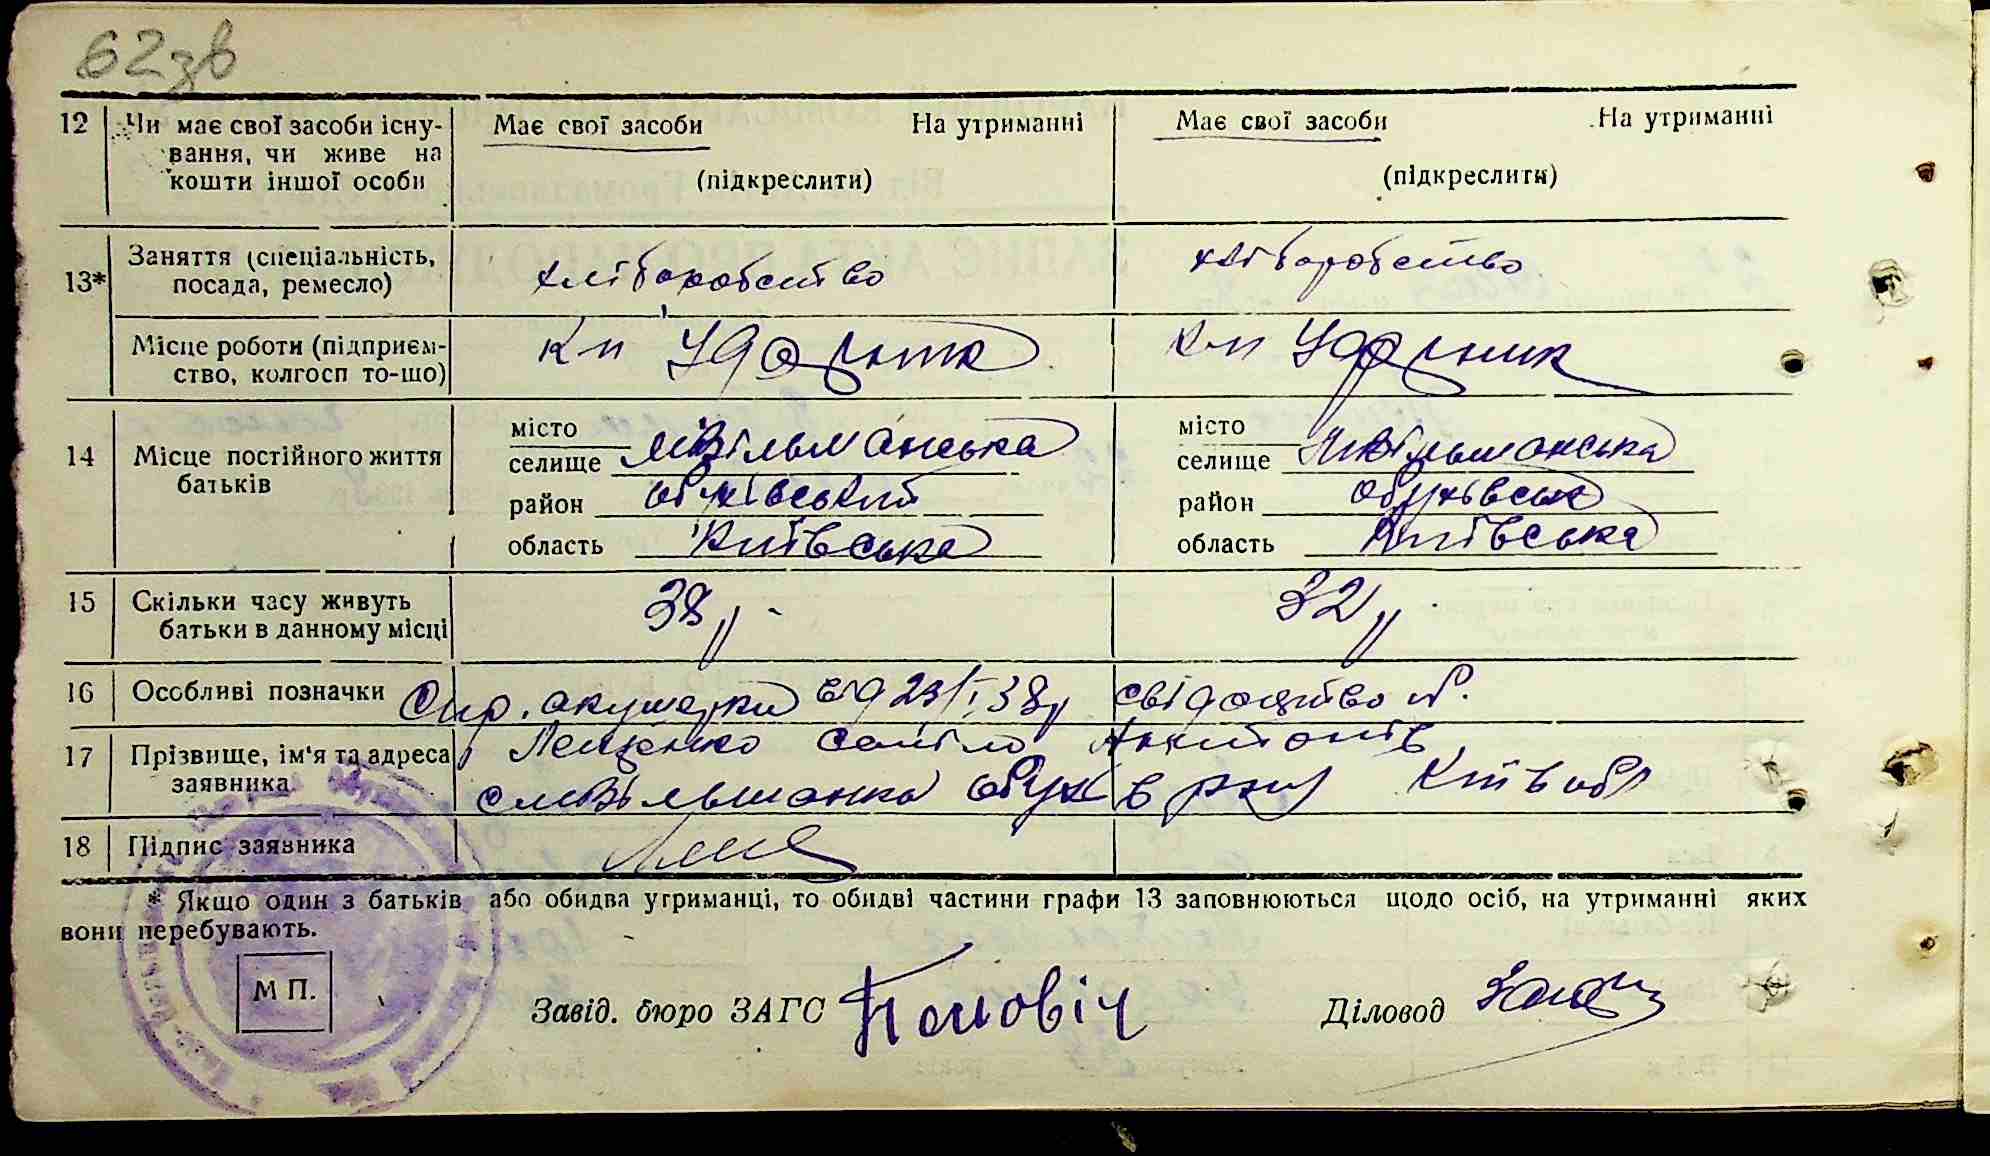 62зв
12 Чи має свої засоби існу- Має свої засоби На утриманні Має свої засоби На утриманні
вання, чи живе на
кошти іншої особи (підкреслити) (підкреслити)
13* Заняття (спеціальність, хліборобство хліборобство
посада, ремесло)
Місце роботи (підприєм- Ударник Ударник
ство, колгосп то-що)
14 Місце постійного життя місто місто
батьків селище МВільшанська селище МВільшанська
район обухівський район обухівськ
область Київська область Київська
15 Скільки часу живуть 38р 32р
батьки в данному місці
16 Особливі позначки акушерки від 23/I 38р свідоцтво №.
17 Прізвище, ім'я та адреса Лещенко
заявника с МВільшанка обухів р-ну Київ обл
18 Підпис заявника
* Якщо один з батьків або обидва утриманці, то обидві частини графи 13 заповнюються щодо осіб, на утриманні яких
вони перебувають.
М П.
Завід. бюро ЗАГС Попович Діловод